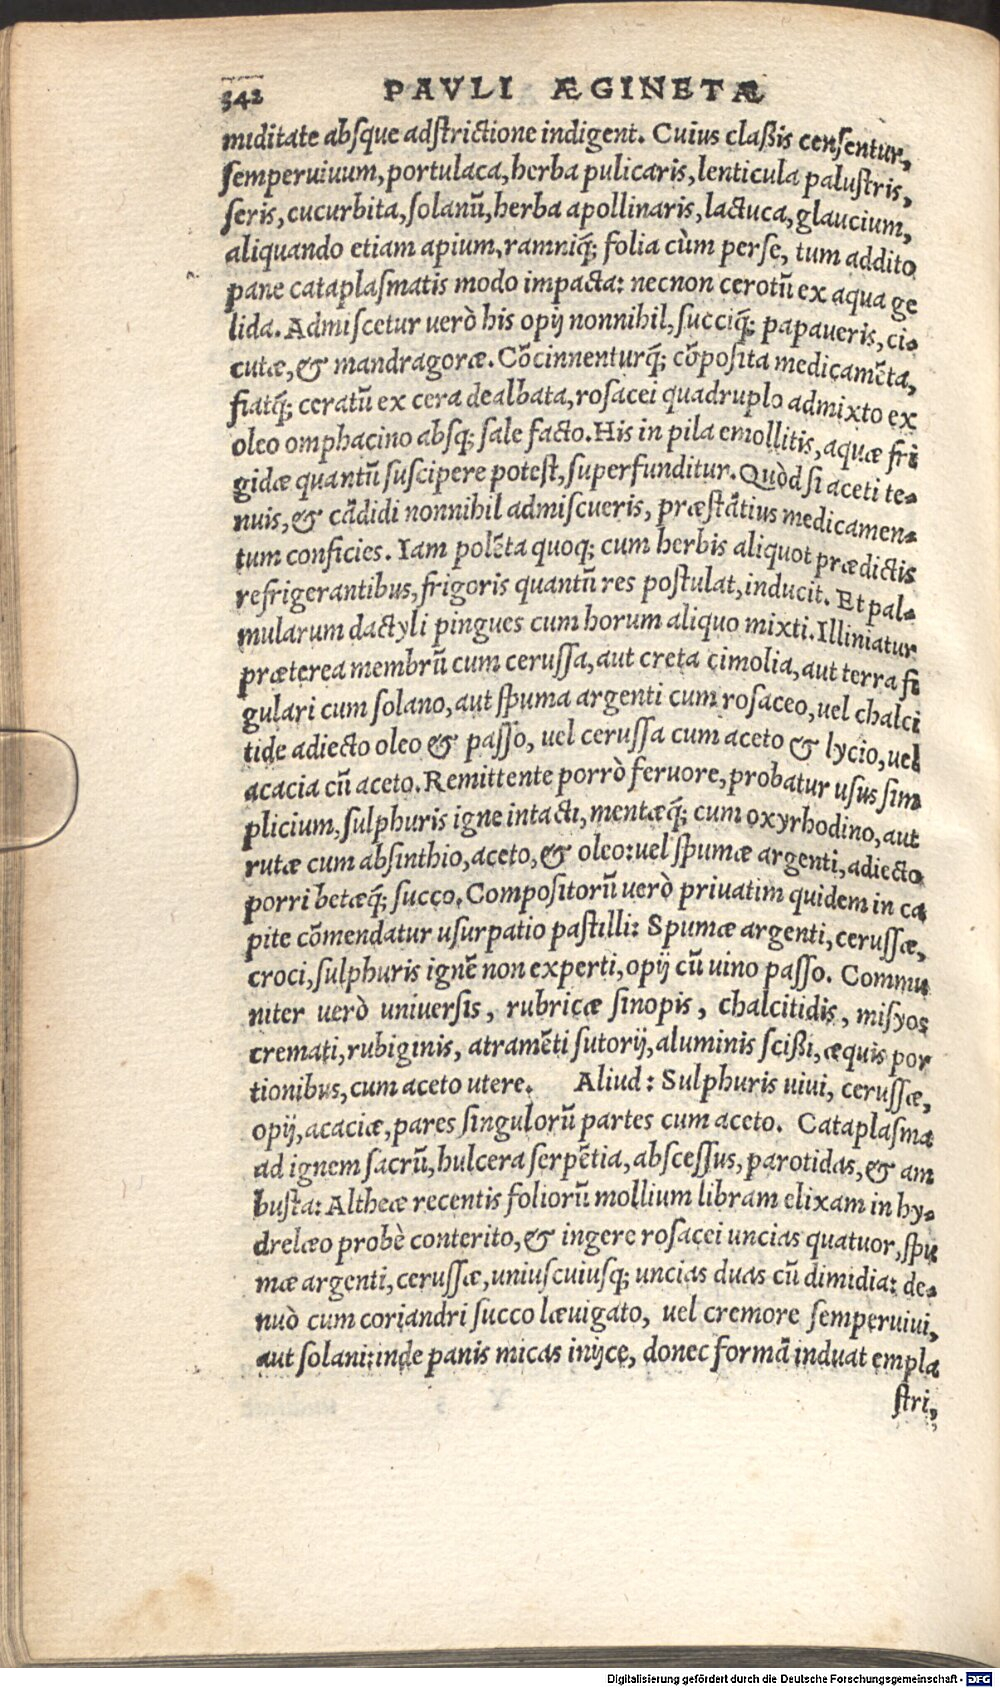 342 PAVLI ÆGINETÆ
miditate absque adstrictione indigent. Cuius claßis censentur,
semperuiuum, portulaca, herba pulicaris, lenticula palustris,
seris, cucurbita, solanũ, herba apollinaris, lactuca, glaucium,
aliquando etiam apium, ramniq́; folia cùm perse, tum addito
pane cataplasmatis modo impacta: necnon cerotũ ex aqua ge
lida. Admiscetur uerò his opij nonnihil, succiq́; papaueris, ci-
cutæ, & mandragoræ. Cõcinnenturq́; cõposita medicamẽta,
fiatq́; ceratũ ex cera dealbata, rosacei quadruplo admixto ex
oleo omphacino absq; sale facto. His in pila emollitis, aquæ fri
gidæ quantũ suscipere potest, superfunditur. Quòd si aceti te-
nuis, & cãdidi nonnihil admiscueris, præstãtius medicamen-
tum conficies. Iam polẽta quoq; cum herbis aliquot prædictis
refrigerantibus, frigoris quantũ res postulat, inducit. Et pal-
mularum dactyli pingues cum horum aliquo mixti. Illiniatur
præterea membrũ cum cerussa, aut creta cimolia, aut terra fi
gulari cum solano, aut spuma argenti cum rosaceo, uel chalci
tide adiecto oleo & passo, uel cerussa cum aceto & lycio, uel
acacia cũ aceto. Remittente porrò feruore, probatur usus sim
plicium, sulphuris igne intacti, mentæq́; cum oxyrhodino, aut
rutæ cum absinthio, aceto, & oleo: uel spumæ argenti, adiecto
porri betæq́; succo. Compositorũ uerò priuatim quidem in ca
pite cõmendatur usurpatio pastilli: Spumæ argenti, cerussæ,
croci, sulphuris ignẽ non experti, opij cũ uino passo. Commu
niter uerò uniuersis, rubricæ sinopis, chalcitidis, misyos
cremati, rubiginis, atramẽti sutorij, aluminis scißi, æquis por
tionibus, cum aceto utere. Aliud: Sulphuris uiui, cerussæ,
opij, acaciæ, pares singulorũ partes cum aceto. Cataplasma
ad ignem sacrũ, hulcera serpẽtia, abscessus, parotidas, & am
busta: Altheæ recentis foliorũ mollium libram elixam in hy-
drelæo probè conterito, & ingere rosacei uncias quatuor, spu
mæ argenti, cerussæ, uniuscuiusq; uncias duas cũ dimidia: de-
nuò cum coriandri succo læuigato, uel cremore semperuiui,
aut solani: inde panis micas inijce, donec formã induat empla
stri,
Digitalisierung gefördert durch die Deutsche Forschungsgemeinschaft - DFG